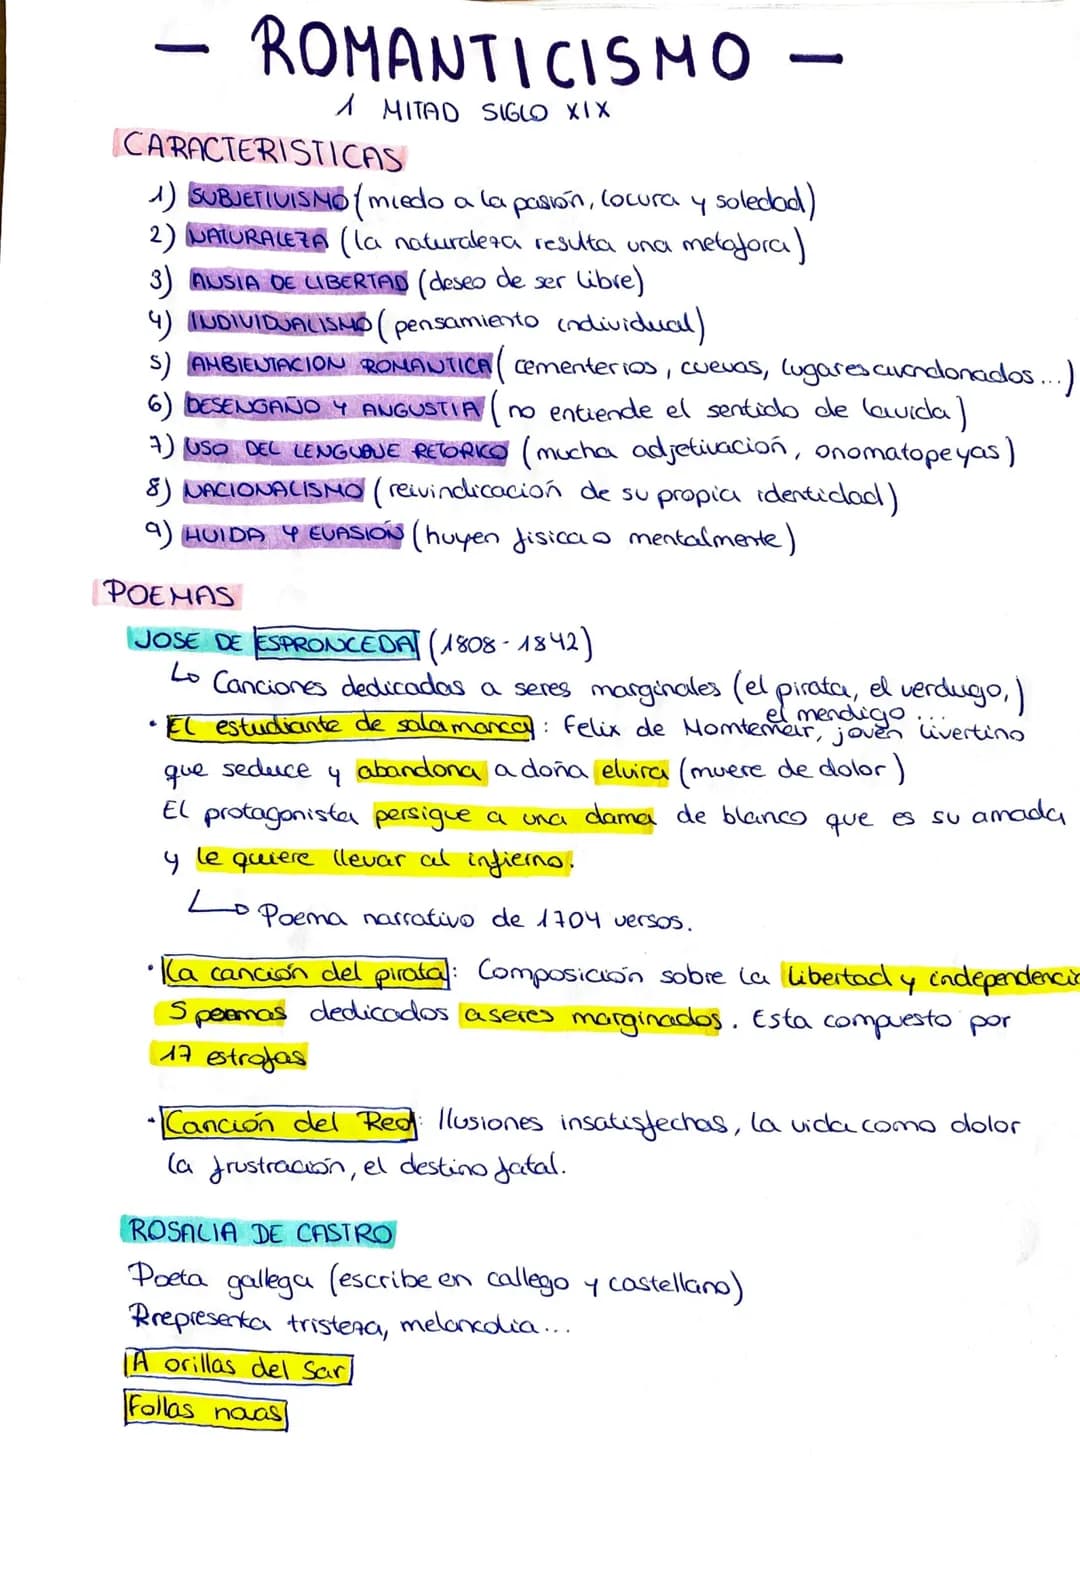 — ROMANTICISMO —
1 MITAD SIGLO XIX
CARACTERISTICAS
1) SUBJETIVISMO (miedo a la pasión, locura y soledad)
2) NATURALEZA (la naturaleza resulta una metafora)
3) ANSIA DE LIBERTAD (deseo de ser libre)
4) INDIVIDUALISMO (pensamiento individual)
5) AMBIENTACION ROMANTICA (cementerios, cuevas, lugares avandonados...)
6) DESENGAÑO Y ANGUSTIA (no entiende el sentido de la vida)
7) USO DEL LENGUAJE RETORICO (mucha adjetivación, onomatopeyas)
8) NACIONALISMO (reivindicación de su propia identidad)
9) HUIDA Y EVASIÓN (huyen fisica o mentalmente)
POEMAS
JOSE DE ESPRONCEDA (1808-1842)
↳ Canciones dedicadas a seres marginales (el pirata, el verdugo,)
el mendigo...
• El estudiante de salamanca: Felix de Montemar, joven livertino
que seduce y abandona a doña elvira (muere de dolor)
El protagonista persigue a una dama de blanco que es su amada
y le quiere llevar al infierno.
↳ Poema narrativo de 1704 versos.
• La canción del pirata: Composición sobre la libertad y independencia
5 poemas dedicados a seres marginados. Esta compuesto por
17 estrofas
• Canción del Reo: Ilusiones insatisfechas, la vida como dolor
la frustración, el destino fatal.
ROSALIA DE CASTRO
Poeta gallega (escribe en callego y castellano)
Rrepresenta tristeza, melancolia...
A orillas del Sar
Follas novas